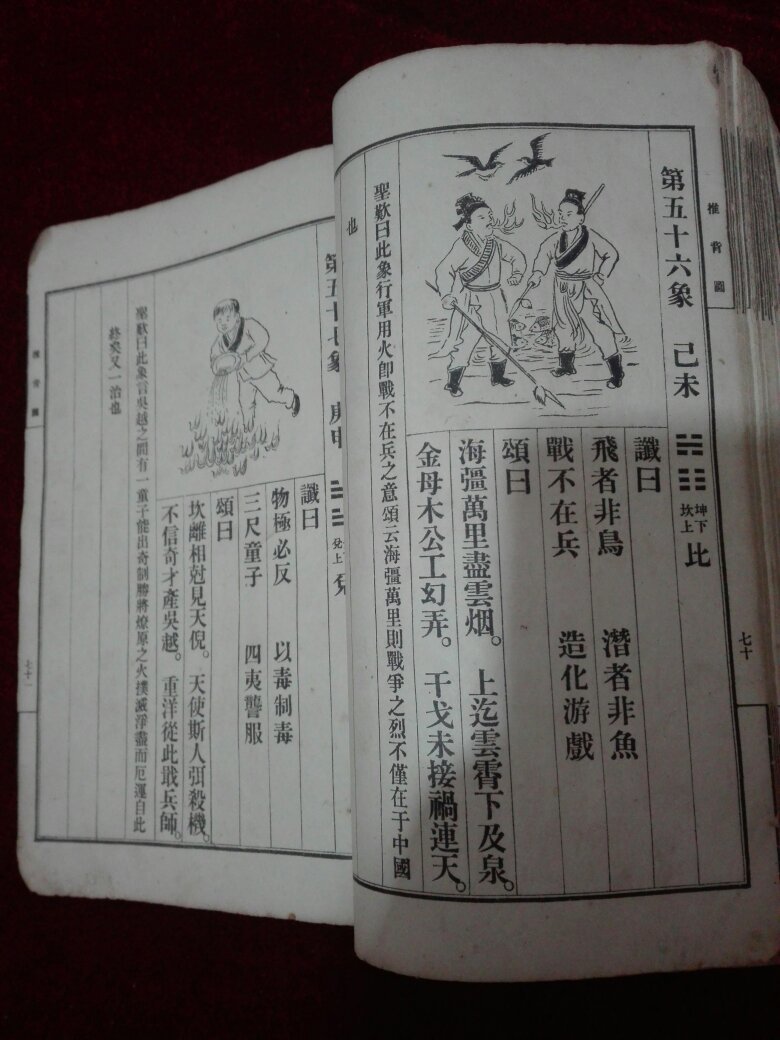 推背圖
七十
第五十六象 己未 ䷇ 坤下坎上 比
讖曰
飛者非鳥 潛者非魚
戰不在兵 造化游戲
頌曰
海疆萬里盡雲烟。 上迄雲霄下及泉。
金母木公工幻弄。 干戈未接禍連天。
聖歎曰此象行軍用火卽戰不在兵之意頌云海疆萬里則戰爭之烈不僅在于中國
也
第五十七象 庚申 兌上 兌
讖曰
物極必反 以毒制毒
三尺童子 四夷讋服
頌曰
坎離相尅見天倪。 天使斯人弭殺機。
不信奇才產吳越。 重洋從此戢兵師。
聖歎曰此象言吳越之間有一童子能出奇制勝將燎原之火撲滅淨盡而厄運自此
終矣又一治也
推背圖
七十一